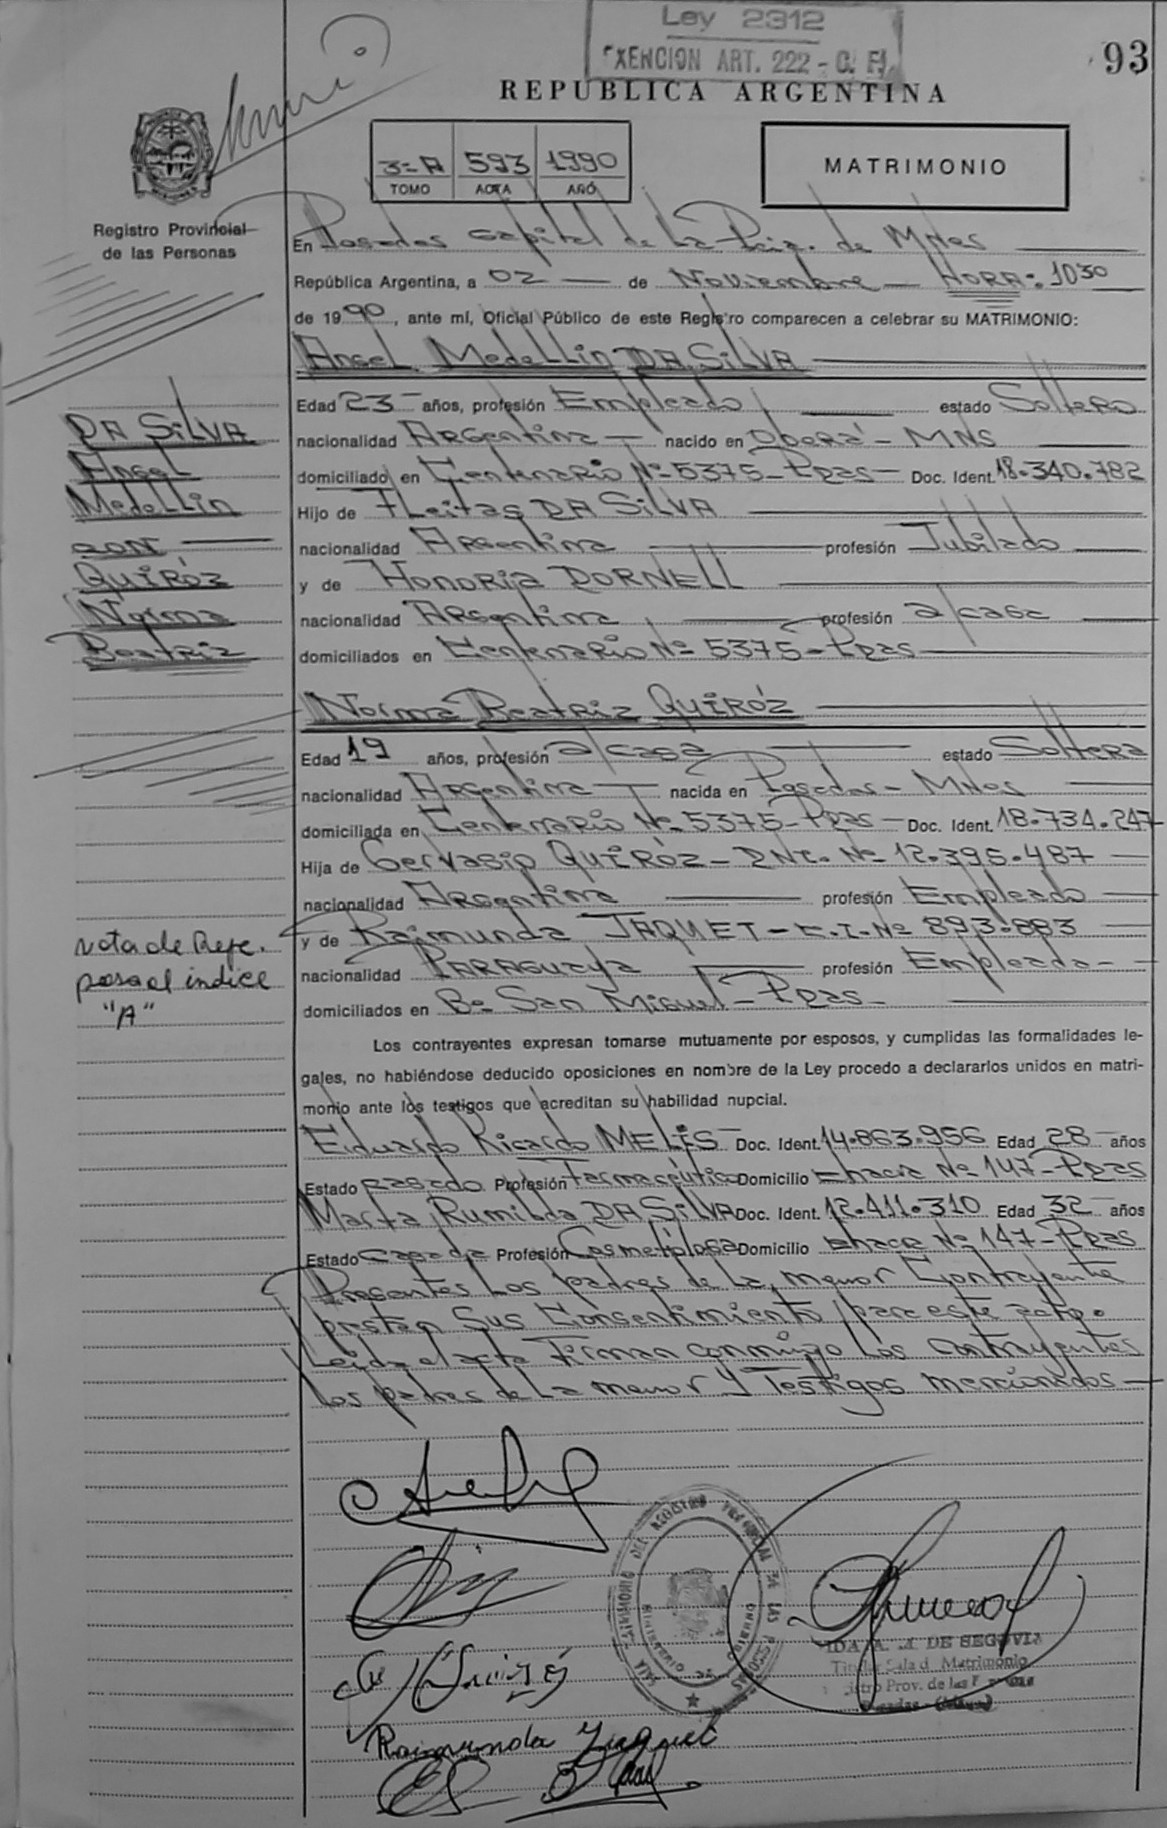 Ley 2312
EXENCION ART. 222 - C. F.
93
REPUBLICA ARGENTINA
3-A 593 1990
TOMO ACTA AÑO
MATRIMONIO
Registro Provincial
de las Personas
En Posadas Capital de La Pcia. de MNes
República Argentina, a 02 de Noviembre HORA: 10 30
de 1990, ante mí, Oficial Público de este Registro comparecen a celebrar su MATRIMONIO:
Angel Medellin DA SILVA
Edad 23 años, profesión Empleado estado Soltero
nacionalidad Argentina nacido en Oberá - MNS
domiciliado en Centenario Nº 5375 - Pdas Doc. Ident. 18.340.782
Hijo de Fleitas DA SILVA
nacionalidad Argentina profesión Jubilado
y de Honoria DORNELL
nacionalidad Argentina profesión a/casa
domiciliados en Centenario Nº 5375 - Pdas
DA SILVA
Angel
Medellin
con
QUIRÓZ
Norma
Beatriz
Norma Beatriz QUIRÓZ
Edad 19 años, profesión a/casa estado Soltera
nacionalidad Argentina nacida en Posadas - MNes
domiciliada en Centenario Nº 5375 - Pdas - Doc. Ident. 18.734.247
Hija de Gervasio QUIRÓZ - DNI. Nº 12.395.487
nacionalidad Argentina profesión Empleado
y de Raimunda JAQUET - C.I. Nº 893.883
nacionalidad PARAGUAYA profesión Empleada -
domiciliados en Bº San Miguel - Pdas -
nota de Refe.
pasa al indice
"A"
Los contrayentes expresan tomarse mutuamente por esposos, y cumplidas las formalidades le-
gales, no habiéndose deducido oposiciones en nombre de la Ley procedo a declararlos unidos en matri-
monio ante los testigos que acreditan su habilidad nupcial.
Eduardo Ricardo MELIS - Doc. Ident. 14.863.956 Edad 28 años
Estado casado Profesión Farmacéutico Domicilio Chacra Nº 147 - Pdas
Marta Rumilda DA SILVA Doc. Ident. 12.411.310 Edad 32 años
Estado casada Profesión Cosmetóloga Domicilio Chacra Nº 147 - Pdas
Presentes Los padres de La menor Contrayente
prestan Sus Consentimiento para este acto.
Leída el acta Firman conmigo Los Contrayentes
Los padres de La menor y Testigos mencionados
DE SEGOVIA
Titular Sala d. Matrimonio
Prov. de las
Posadas
Raimunda Jaquet